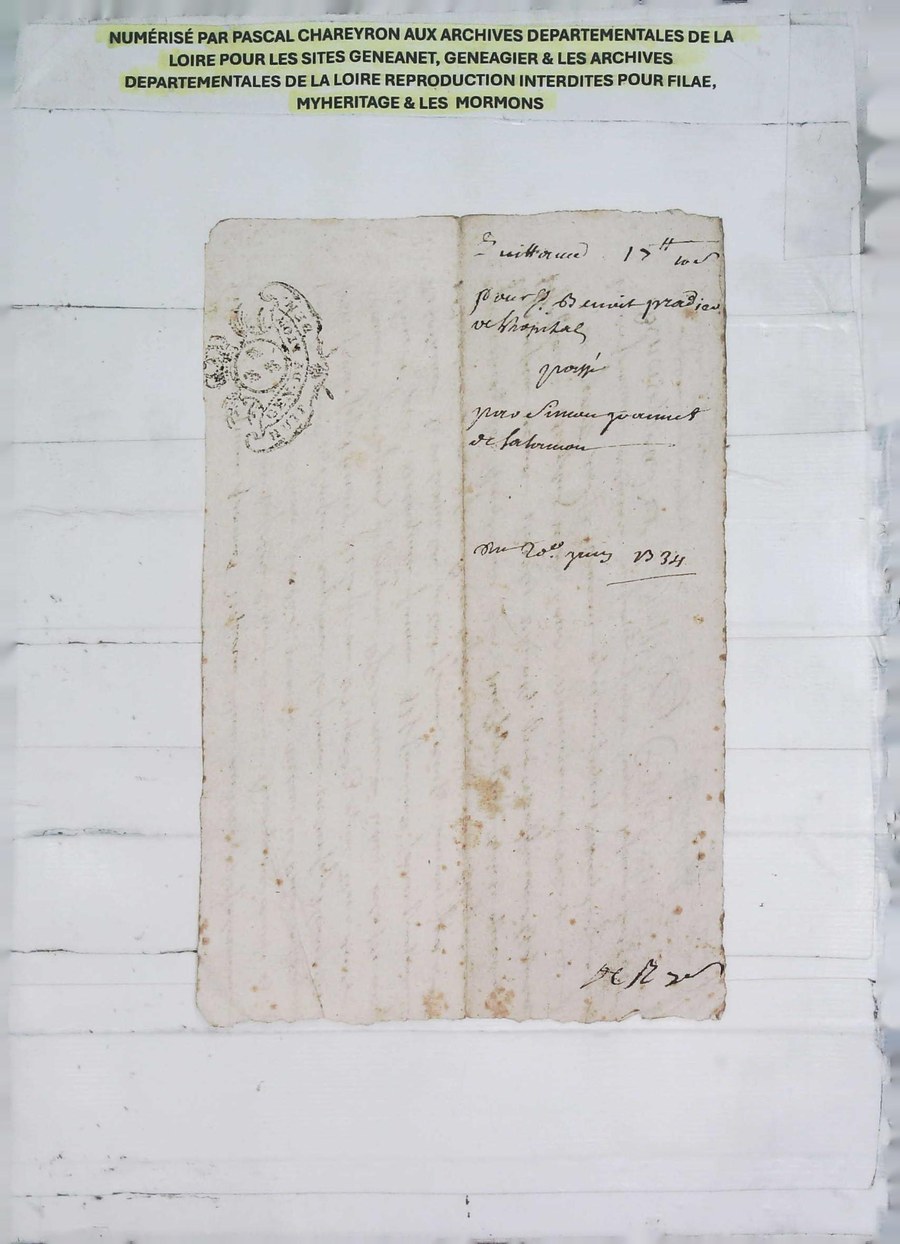 NUMÉRISÉ PAR PASCAL CHAREYRON AUX ARCHIVES DEPARTEMENTALES DE LA
LOIRE POUR LES SITES GENEANET, GENEAGIER & LES ARCHIVES
DEPARTEMENTALES DE LA LOIRE REPRODUCTION INTERDITES POUR FILAE,
MYHERITAGE & LES MORMONS
17tt 10s
pour Sr. Benoit pradier
de l'hopital
passé
par Simon
de
Du 20e juin 1734
GEN